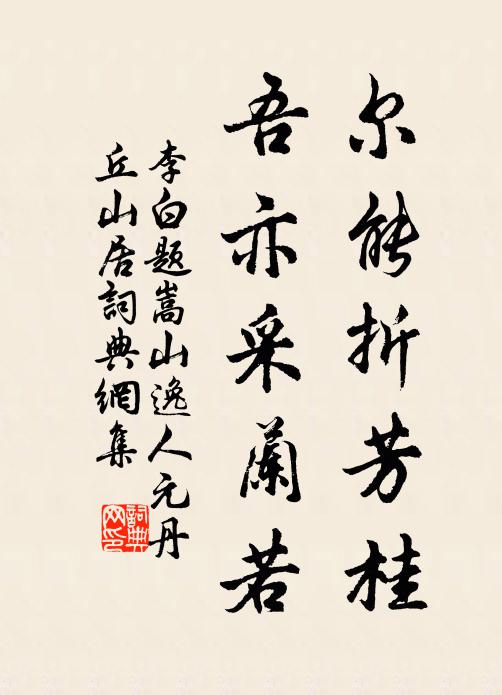 尔能折芳桂
吾亦采蘭若
李白题嵩山逸人元丹
丘山居詞典網集
詞典网印